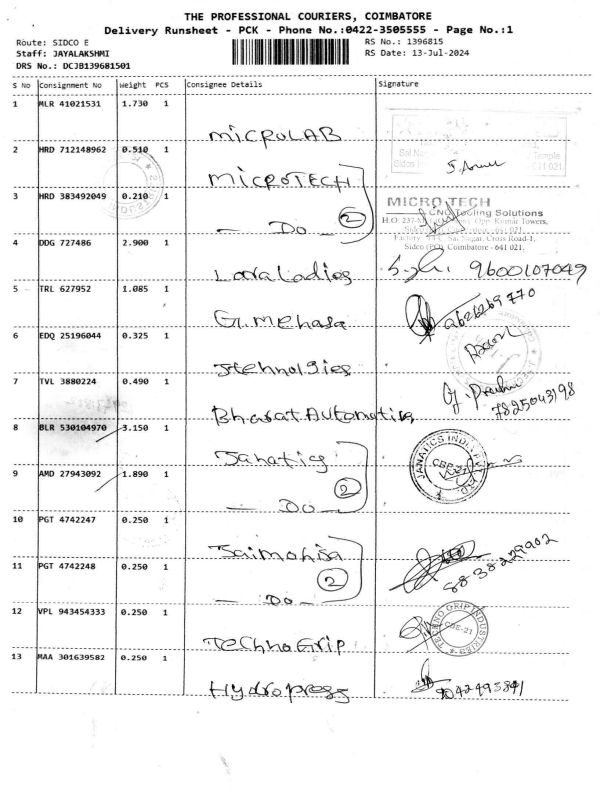 THE PROFESSIONAL COURIERS, COIMBATORE
Delivery Runsheet - PCK - Phone No.:0422-3505555 - Page No.:1
Route: SIDCO E
Staff: JAYALAKSHMI
DRS No.: DCJB139681501
RS No.: 1396815
RS Date: 13-Jul-2024
S No Consignment No Weight PCS Consignee Details Signature
1 MLR 41021531 1.730 1
MICROLAB
2 HRD 712148962 0.510 1
MICROTECH
3 HRD 383492049 0.210 1
MICRO TECH
CNC Tooling Solutions
Sai Nagar, Cross Road-1,
Sidco (PO), Coimbatore - 641 021.
— Do — 2
4 DDG 727486 2.900 1
9600107049
5 TRL 627952 1.085 1
G.Mehasa
6 EDQ 25196044 0.325 1
Jtehnolgies
7 TVL 3880224 0.490 1
7825043198
Bharat Automation
8 BLR 530104970 3.150 1
Janatics
JANATICS INDIA PVT LTD
CBE-21
9 AMD 27943092 1.890 1
— Do — 2
10 PGT 4742247 0.250 1
Saimohisa
11 PGT 4742248 0.250 1
88-38229902
— Do — 2
12 VPL 943454333 0.250 1
TechnoGrip
TECHNO GRIP INDUSTRIES
CBE-21
13 MAA 301639582 0.250 1
Hydropress